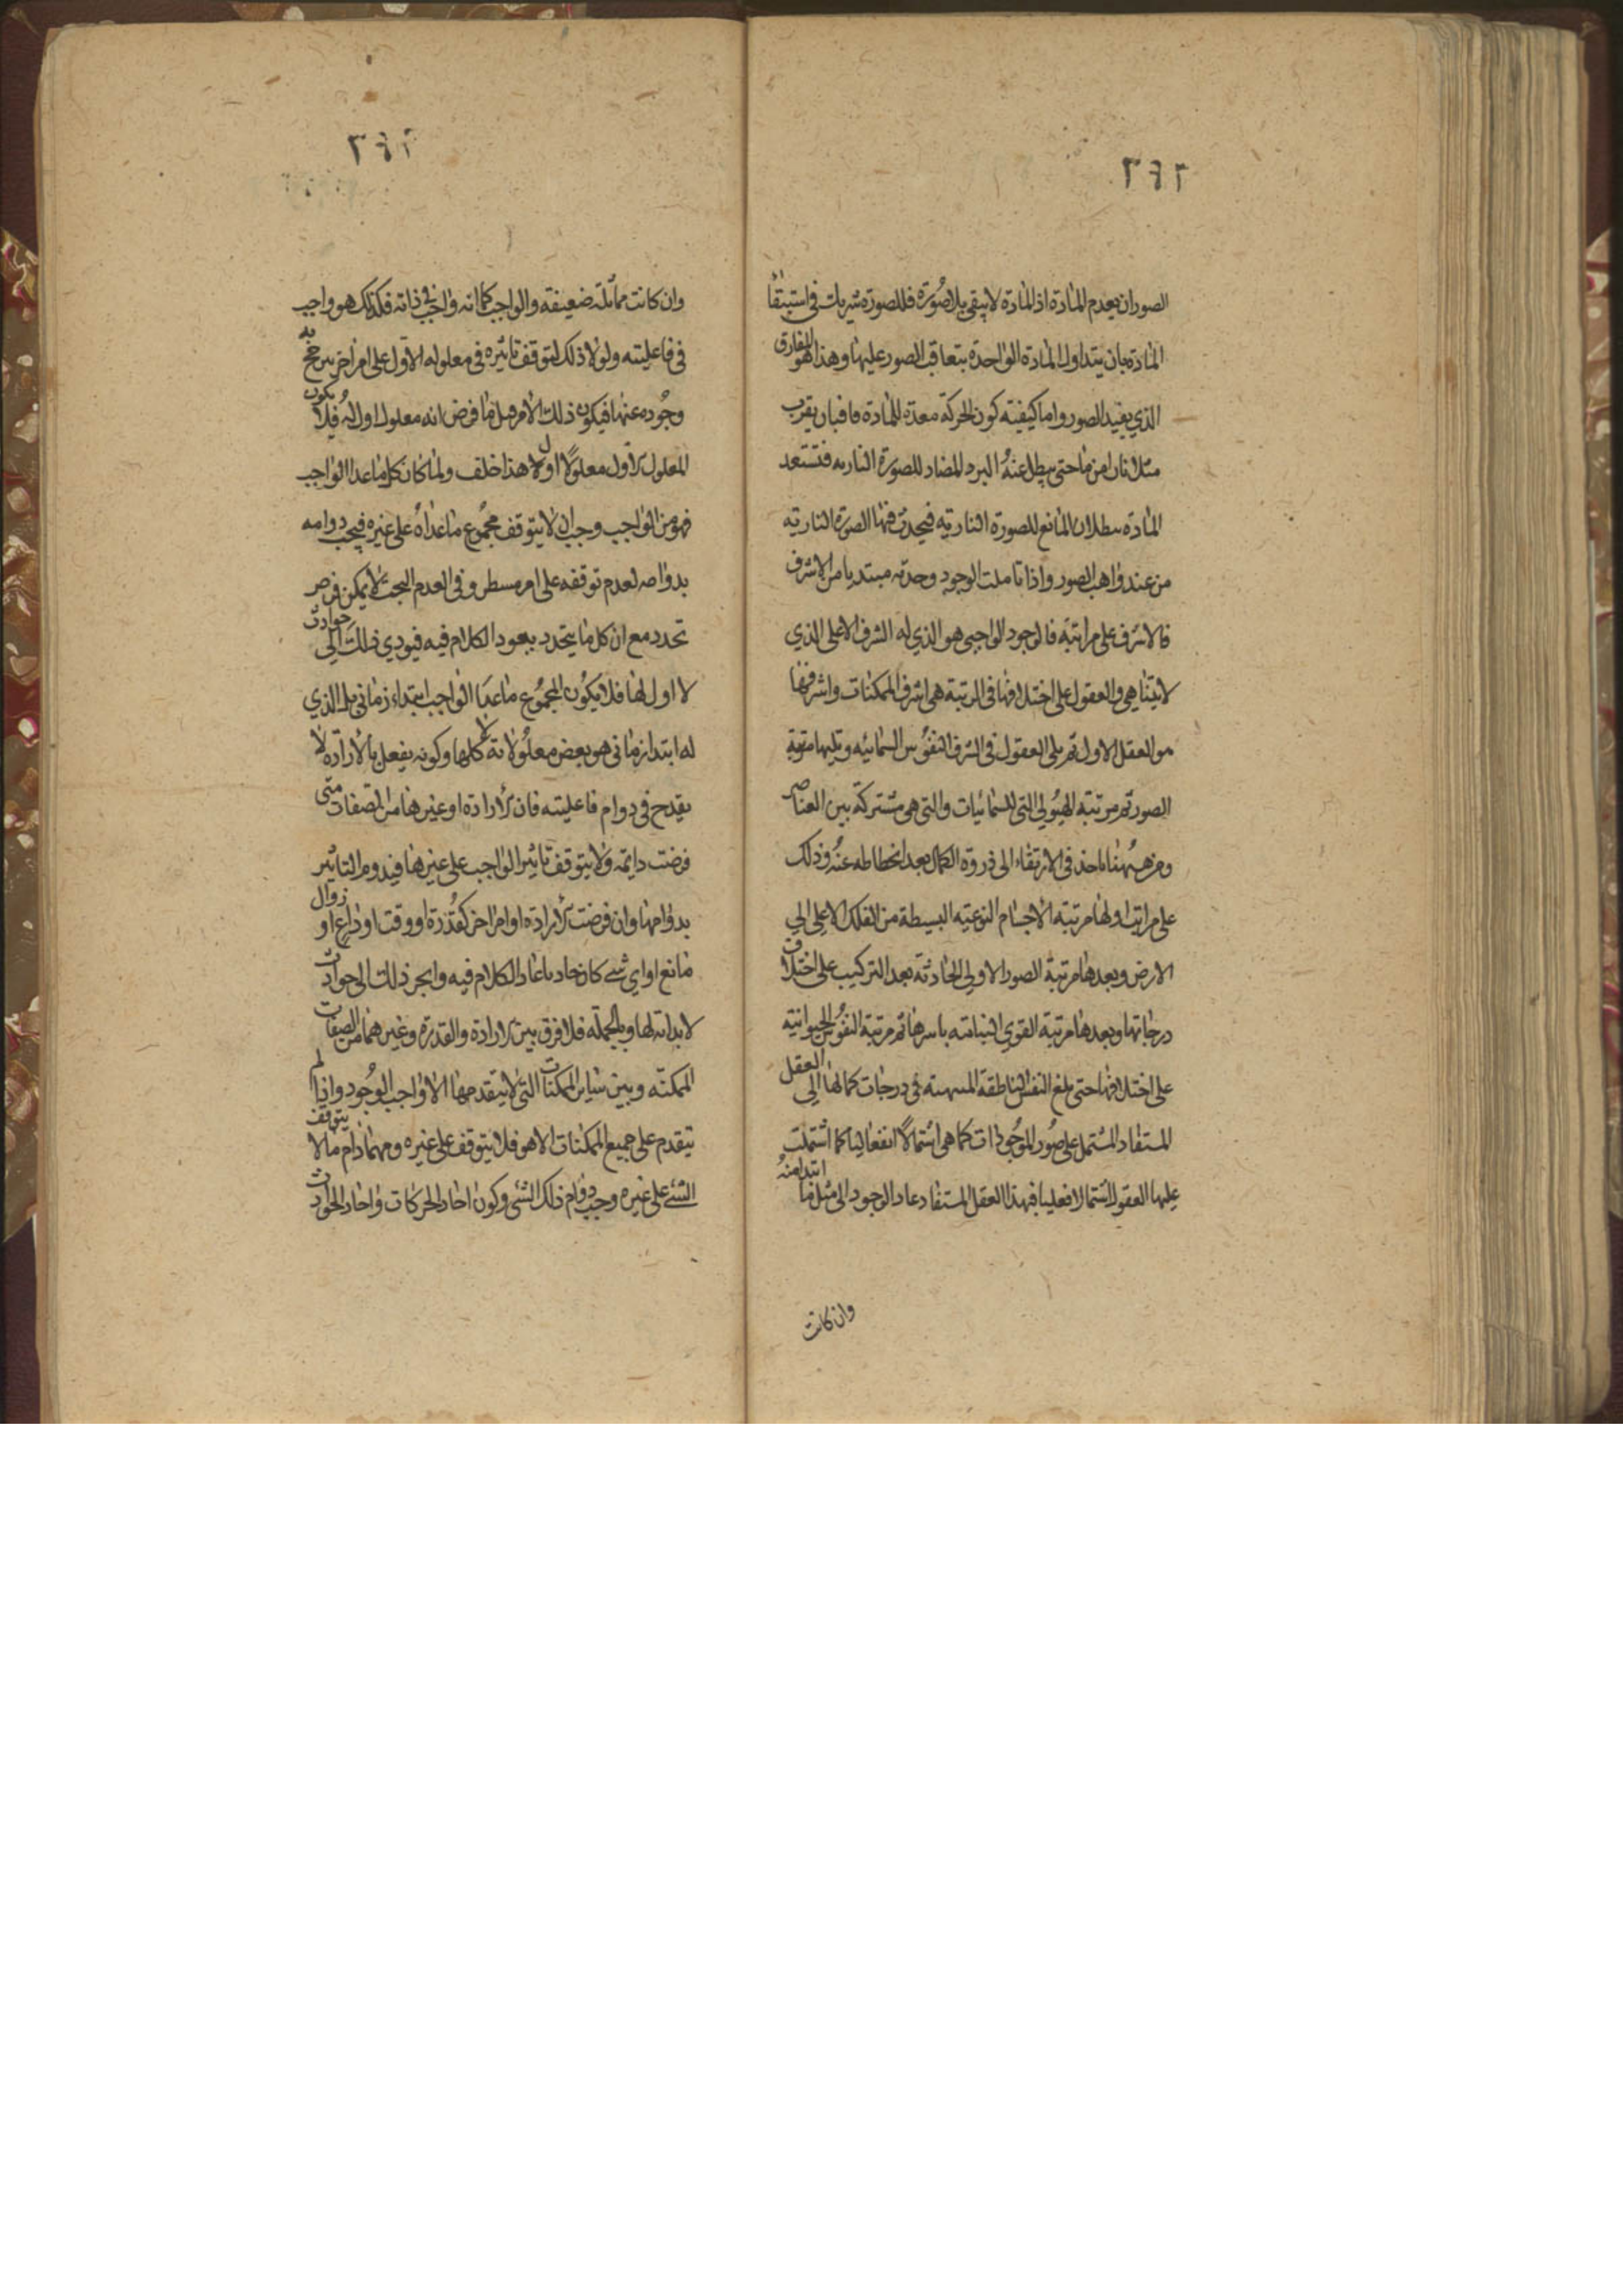 ٢٤٢
الصور ان يعدم المادة اذ المادة لا يبقى بلا صورة فللصورة شريك في استبقاء
المادة بان يتداول المادة الواحدة بتعاقب الصور عليها وهذا هو المفارق
الذي يفيد الصور واما كيفية كون الحركة معدة للمادة فبان يقرب
مثلا نار من ما حتى يبطل عنه البرد المضاد للصورة النارية فتستعد
المادة ببطلان المانع للصورة النارية فيحدث فيها الصورة النارية
من عند واهب الصور واذا تاملت الوجود وجدته مبتديا من الاشرف
فالاشرف على مراتبه فالوجود الواجبي هو الذي له الشرف الاعلى الذي
لا يتناهى والعقول على اختلافها في الرتبة هي اشرف الممكنات واشرفها
هو العقل الاول ثم يلي العقول في الشرف النفوس السمائيه ويليها مرتبة
الصور ثم مرتبة الهيولي التي للسمائيات والتي هي مشتركة بين العناصر
ومن ههنا ياخذ في الارتقاء الى ذروة الكمال بعد انحطاطه عنه وذلك
على مراتب اولها مرتبة الاجسام النوعيه البسيطة من الفلك الاعلى الي
الارض وبعدها مرتبة الصور الاولي الحادثة بعد التركيب على اختلاف
درجاتها وبعدها مرتبة القوي النباتيه باسرها ثم مرتبة النفوس الحيوانية
على اختلافها حتى يبلغ النفس الناطقة في درجات كمالها الي العقل
المستفاد المشتمل على صور الموجودات كما هي اشتمالا انفعاليا كما اشتملت
عليها العقول اشتمالا فعليا فبهذا العقل المستفاد عاد الوجود الى مثل ما ابتدا منه
وان كانت
٢٤٢
وان كانت مماثلة ضعيفة والواجب كما انه واجب في ذاته فكذلك هو واجب
في فاعليته ولولا ذلك لتوقف تاثيره في معلوله الاول على امر اخر يترجح به
وجوده عنها فيكون ذلك الامر قبل ما فرض انه معلول اول له فلا يكون
المعلول الاول معلولا اولا هذا خلف ولما كان كل ما عدا الواجب
فهو من الواجب وجب ان لا يتوقف مجموع ما عداه على غيره فيجب دوامه
بدوامه لعدم توقفه على امر منتظر وفي العدم البحت لا يمكن فرض
تجدد مع ان كل ما يتجدد يعود الكلام فيه فيودي ذلك الي حوادث
لا اول لها فلا يكون لمجموع ما عدا الواجب ابتداء زماني بل الذي
له ابتدا زماني هو بعض معلولاته لا كلها وكونه يفعل بالارادة لا
يقدح في دوام فاعليته فان الارادة او غيرها من الصفات متى
فرضت دايمه ولا يتوقف تاثير الواجب على غيرها فيدوم التاثير
بدوامها وان فرضت الارادة او امر اخر كقدرة او وقت او داع او زوال
مانع او اي شي كان حادثا عاد الكلام فيه وانجر ذلك الى حوادث
لا بداية لها وبالجملة فلا فرق بين الارادة والقدرة وغيرهما من الصفات
الممكنه وبين ساير الممكنات التي لا يتقدمها الا واجب الوجود واذا لم
يتقدم على جميع الممكنات الا هو فلا يتوقف على غيره ومهما دام ما لا يتوقف
الشي على غيره وجب دوام ذلك الشي وكون احاد الحركات واحاد الحوادث